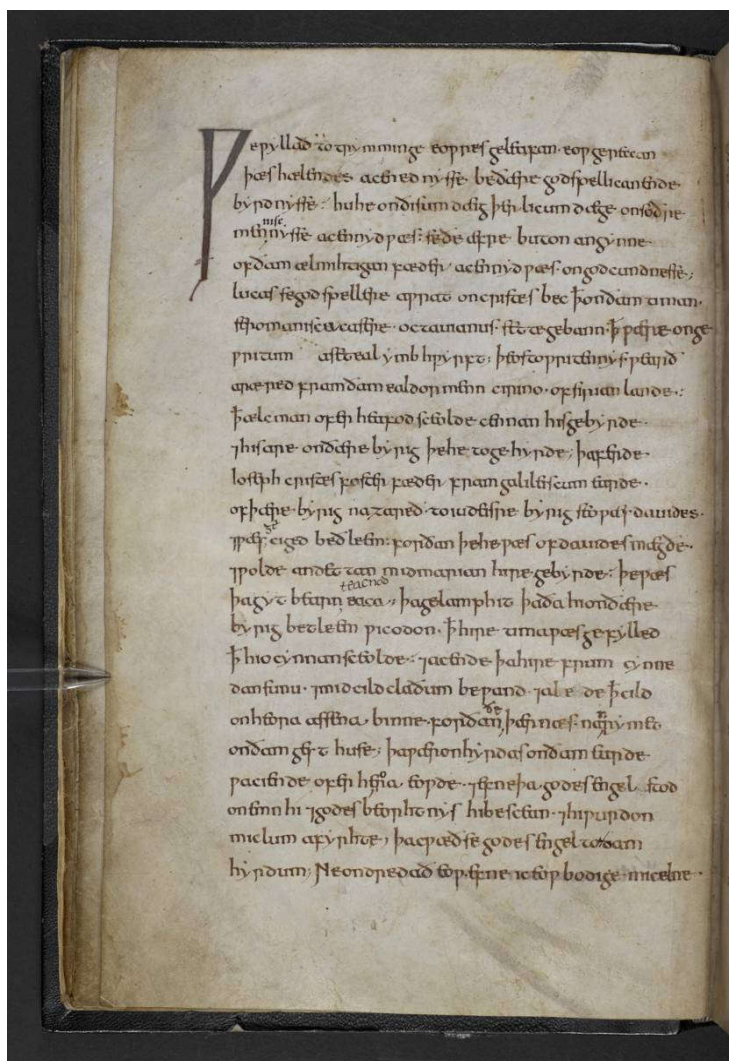 Ƿe ƿyllað to trymminge eoƿres geleafan. eoƿ gereccan
þæs hælendes acennednysse be ðære godspellican ende
byrdnysse: hu he on ðisum dæg þerlicum dæge on soðre
mennniscnysse acenned ƿæs: se ðe æfre buton anginne
of ðam ælmihtigan fæder acenned ƿæs on godcundnesse;
lucas se godspellere aƿrat on cristes bec ꝥ on ðam timan.
se romanisca casere. octauianus. sette gebann. ꝥ ƿære on ge
ƿritum asett eal ymbhƿyrft: þeos toƿritennys ƿearð
aræred fram ðam ealdormenn cirino. of sirian lande:
ꝥ ælc man ofer heafod sceolde cennan his gebyrde.
⁊ his are on ðære byrig þe he to gehyrde; þa ferde
Ioseph cristes foster fæder fram galileiscum earde.
of þære byrig nazareð. to iudeisre byrig seo ƿæs dauides.
⁊ ƿæs ge ciged beðleem: forðan þe he ƿæs of dauides mægðe.
⁊ ƿolde andettan mid marian hire gebyrde: þe ƿæs
þa gyt bearn eaca; þa gelamp hit þa ða hi on ðære
byrig betleem ƿicodon. ꝥ hire tima ƿæs gefylled
ꝥ hio cynnan sceolde: ⁊ acende þa hire frum cynne
dan sunu. ⁊ mid cild claðum beƿand. ⁊ alede ꝥ cild
on heora assena binne. forðan ðe þær næs nan rymet
on ðam gest huse; þa ƿæron hyrdas on ðam earde
ƿaciende ofer heora eoƿde. ⁊ efne þa godes engel stod
on emn hi ⁊ godes beorhtnys hi bescean. ⁊ hi ƿurdon
miclum afyrhte; þa cƿæð se godes engel to ðam
hyrdum; Ne ondrædað eoƿ. efne ic eoƿ bodige micelne